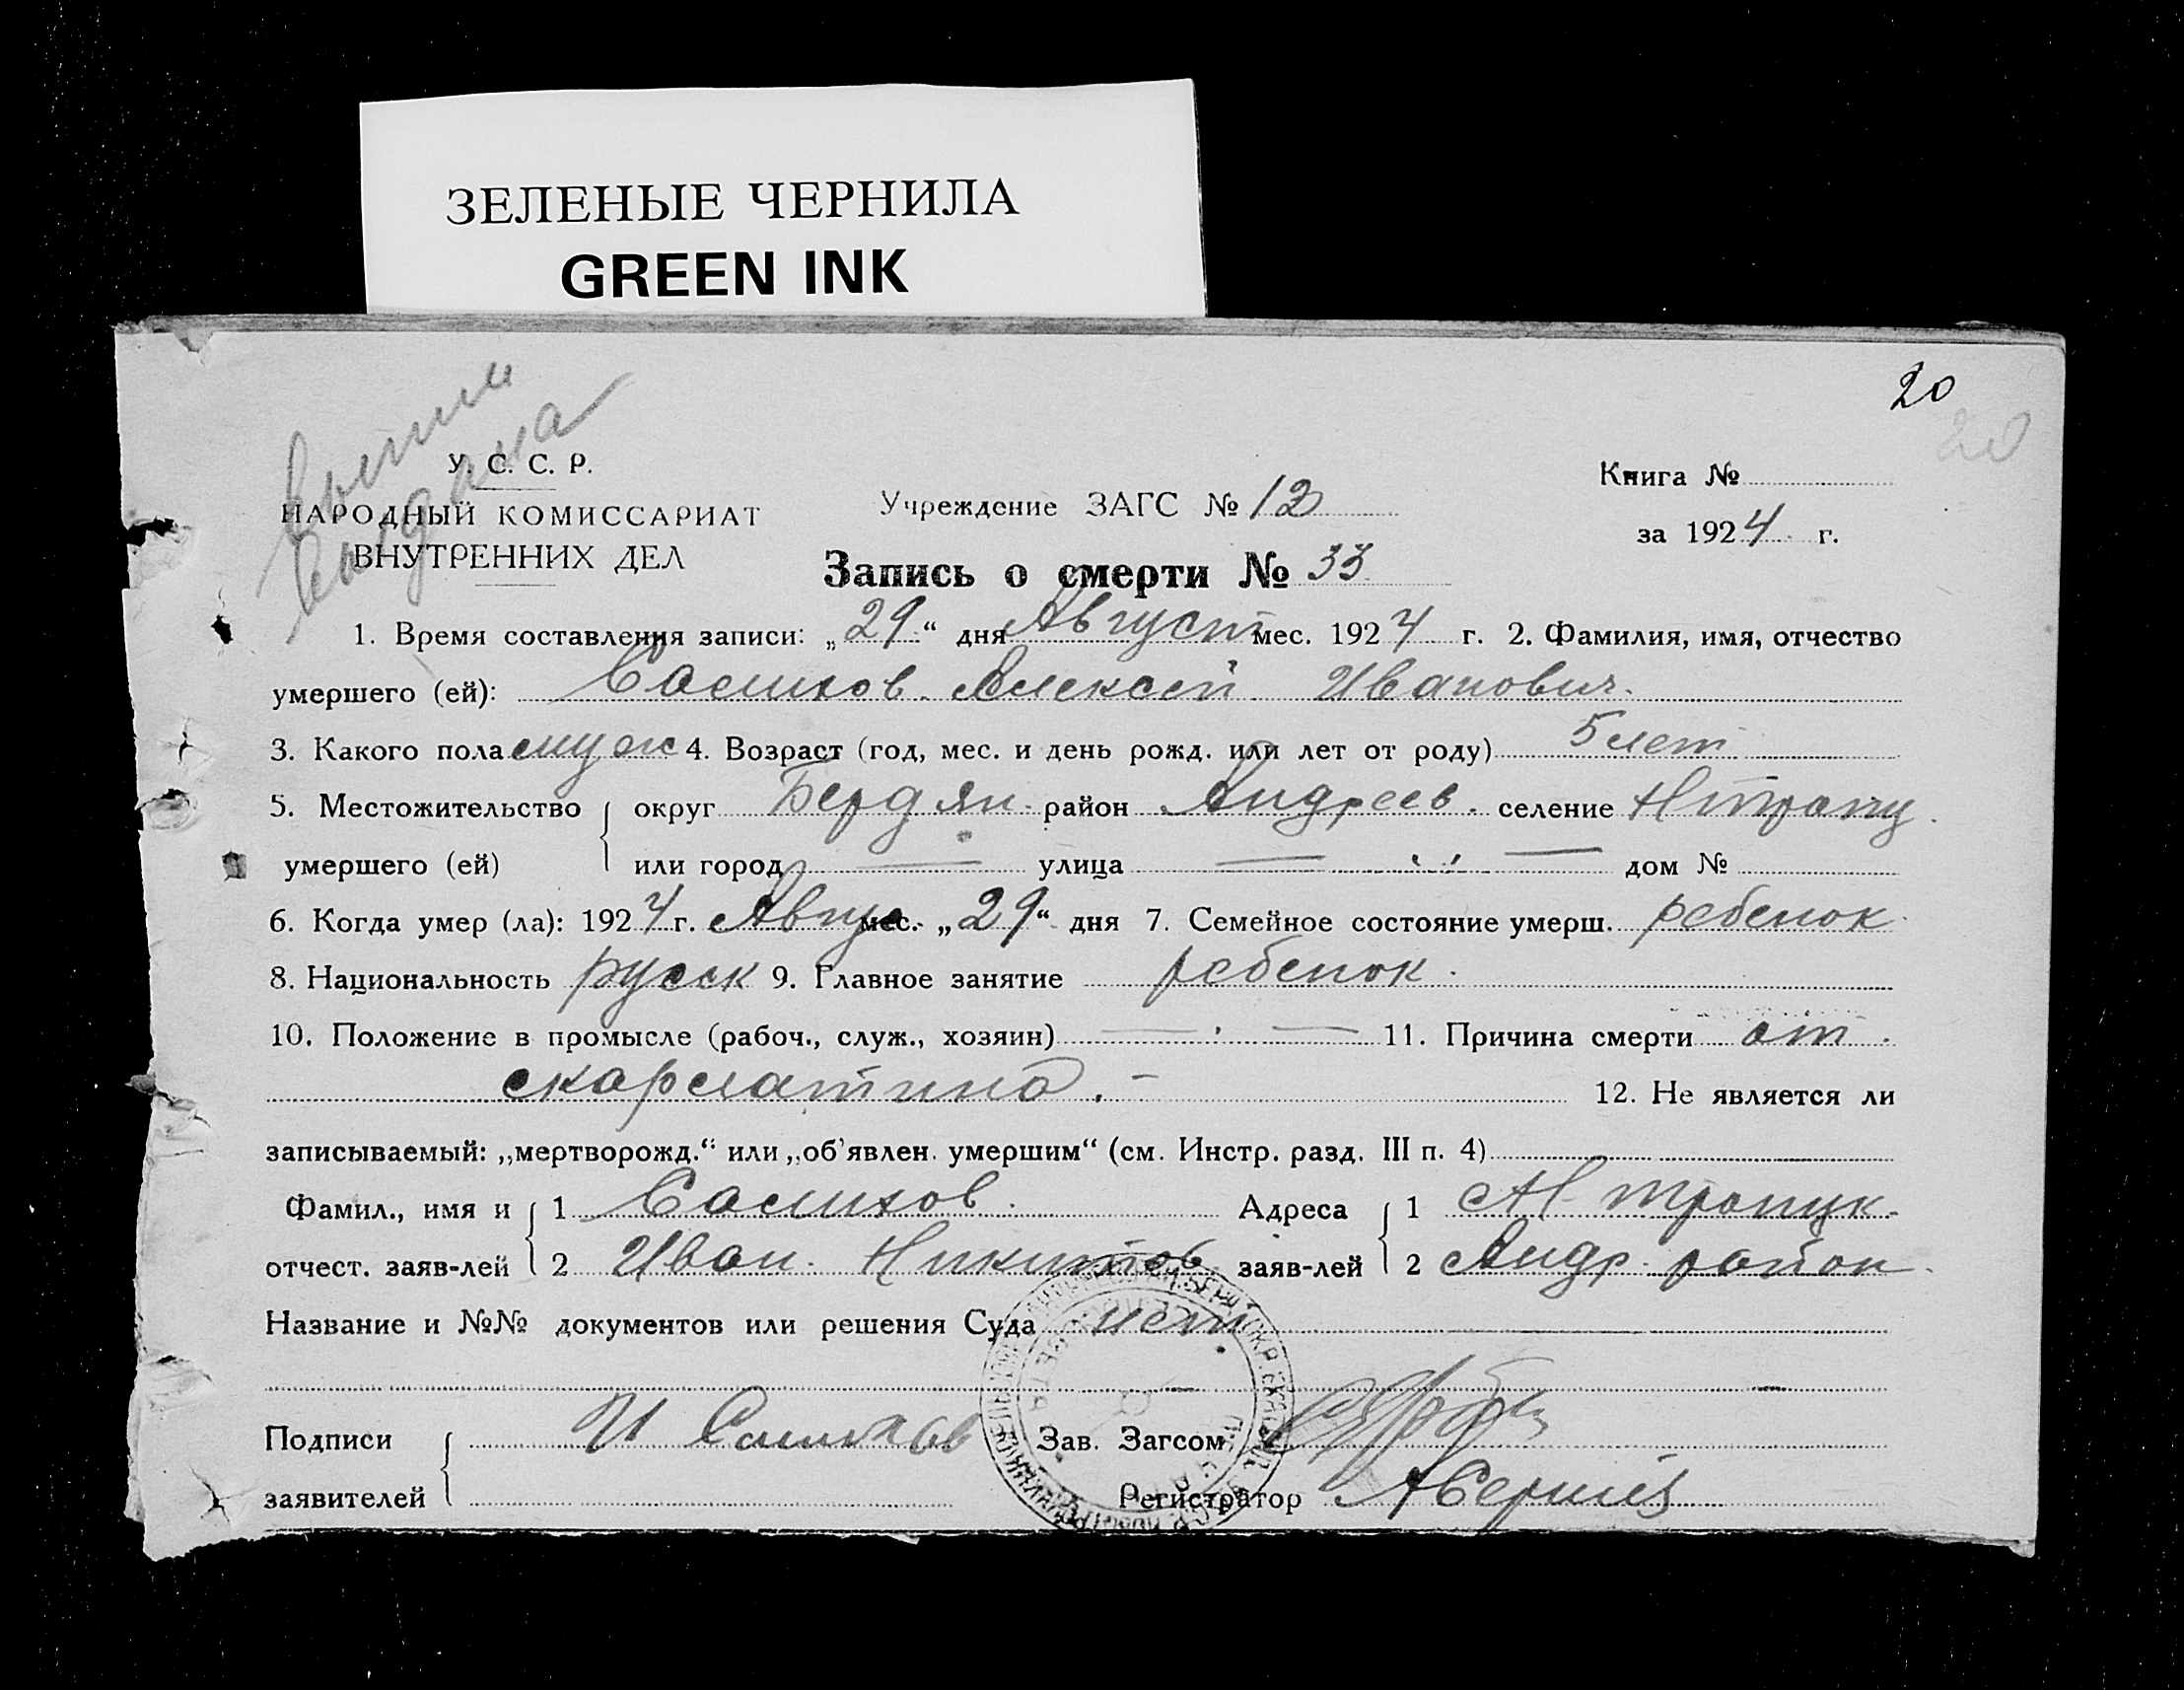 ЗЕЛЕНЫЕ ЧЕРНИЛА
GREEN INK
20
20
У. С. С. Р.
НАРОДНЫЙ КОМИССАРИАТ
ВНУТРЕННИХ ДЕЛ
Учреждение ЗАГС № 12
Книга №
за 1924 г.
Запись о смерти № 33
1. Время составления записи: „29“ дня Август мес. 1924 г. 2. Фамилия, имя, отчество
умершего (ей): Салихов Алексей Иванович.
3. Какого пола муж 4. Возраст (год, мес. и день рожд. или лет от роду) 5 лет
5. Местожительство округ Бердян. район Андреев. селение
умершего (ей) или город — улица — „ — дом №
6. Когда умер (ла): 1924 г. Авгус. мес. „29“ дня 7. Семейное состояние умерш. ребенок
8. Национальность русск 9. Главное занятие ребенок.
10. Положение в промысле (рабоч., служ., хозяин) — . — 11. Причина смерти от
скарлатина. — 12. Не является ли
записываемый: „мертворожд.“ или „об'явлен. умершим“ (см. Инстр. разд. III п. 4)
Фамил., имя и 1 Салихов. Адреса 1
отчест. заяв-лей 2 Иван. Никитов заяв-лей 2 Андр. район
Название и №№ документов или решения Суда нет
Подписи И Салихов Зав. Загсом
заявителей Регистратор